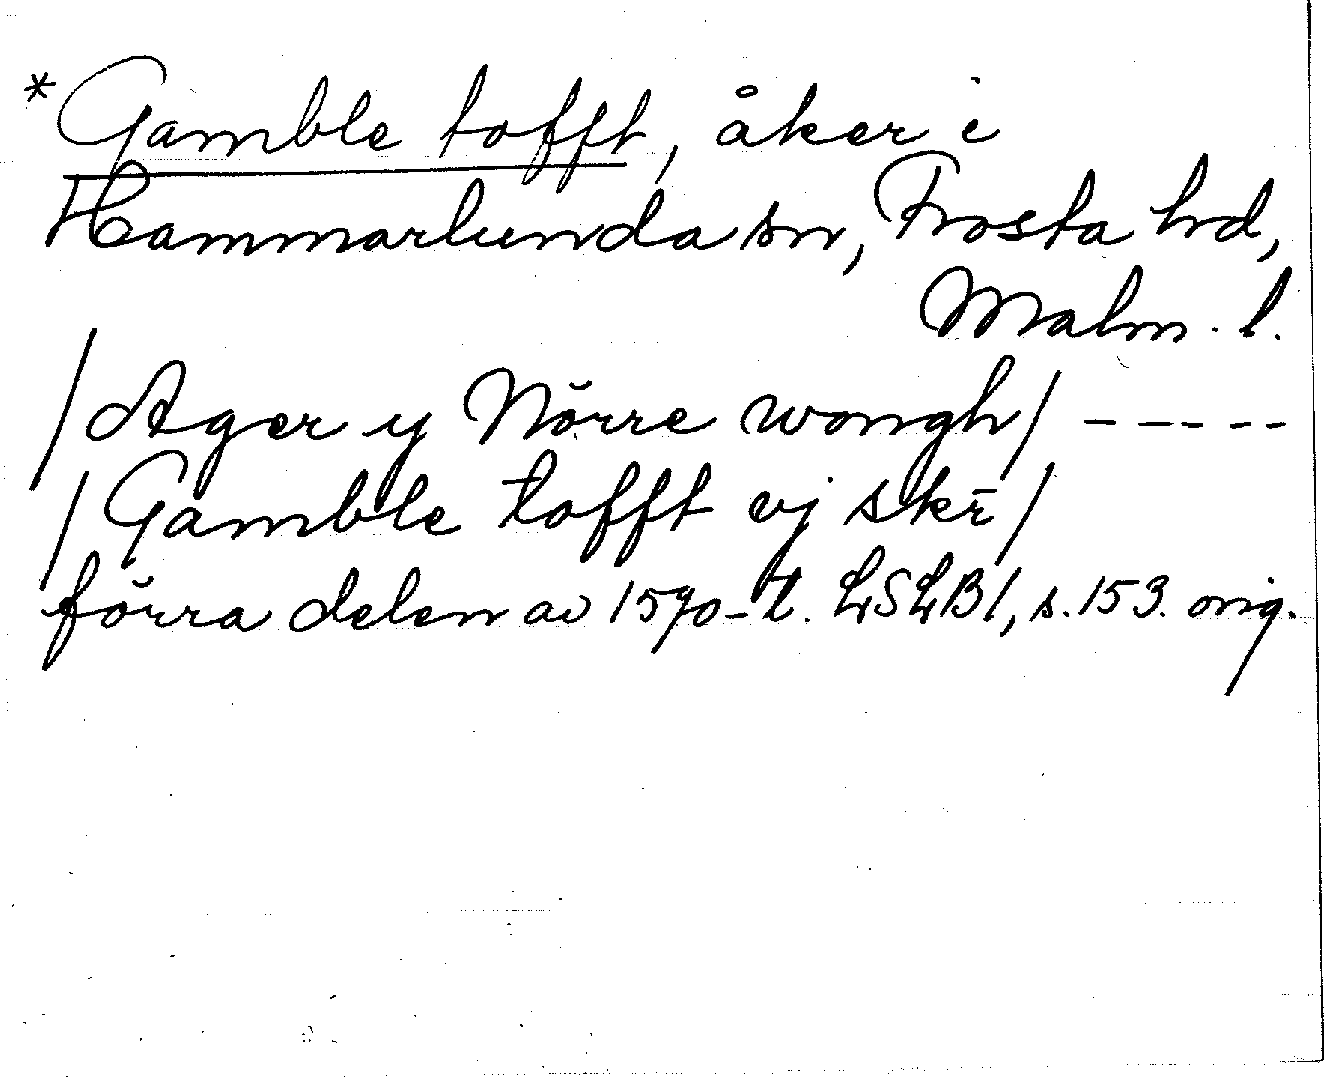 *Gamble tofft, åker i
Hammarlunda sn, Frosta hd,
Malm. l.
/Ager y Nörre wongh/ - - - - -
/Gamble tofft vj skr̄/
förra delen av 1570-t. LSLB1, s. 153. orig.